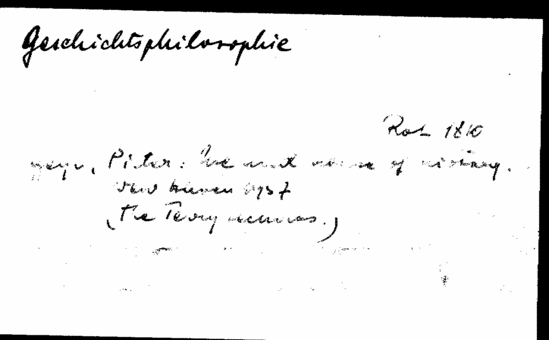 Geschichtsphilosophie
Rob 1810
Geyl, Pieter: Use and abuse of history.
New Haven 1957
(The Terry lectures.)